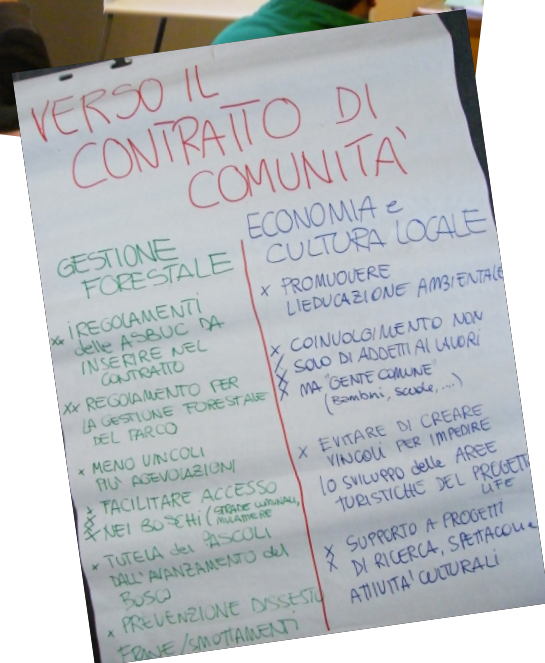 VERSO IL
CONTRATTO DI
COMUNITÀ
GESTIONE
FORESTALE
xx I REGOLAMENTI
delle ASBUC DA
INSERIRE NEL
CONTRATTO
xx REGOLAMENTO PER
LA GESTIONE FORESTALE
DEL PARCO
x MENO VINCOLI
PIÙ AGEVOLAZIONI
x FACILITARE ACCESSO
x NEI BOSCHI (STRADE COMUNALI,
x MULATTIERE
x TUTELA dei PASCOLI
DALL'AVANZAMENTO del
BOSCO
x PREVENZIONE DISSESTO
FRANE/SMOTTAMENTI
ECONOMIA e
CULTURA LOCALE
x PROMUOVERE
L'EDUCAZIONE AMBIENTALE
x COINVOLGIMENTO NON
x SOLO DI ADDETTI AI LAVORI
x MA "GENTE COMUNE"
x (Bambini, scuole,...)
x EVITARE DI CREARE
VINCOLI PER IMPEDIRE
lo SVILUPPO delle AREE
TURISTICHE DEL PROGETTO
LIFE
x SUPPORTO A PROGETTI
x DI RICERCA, SPETTACOLI e
ATTIVITA' CULTURALI